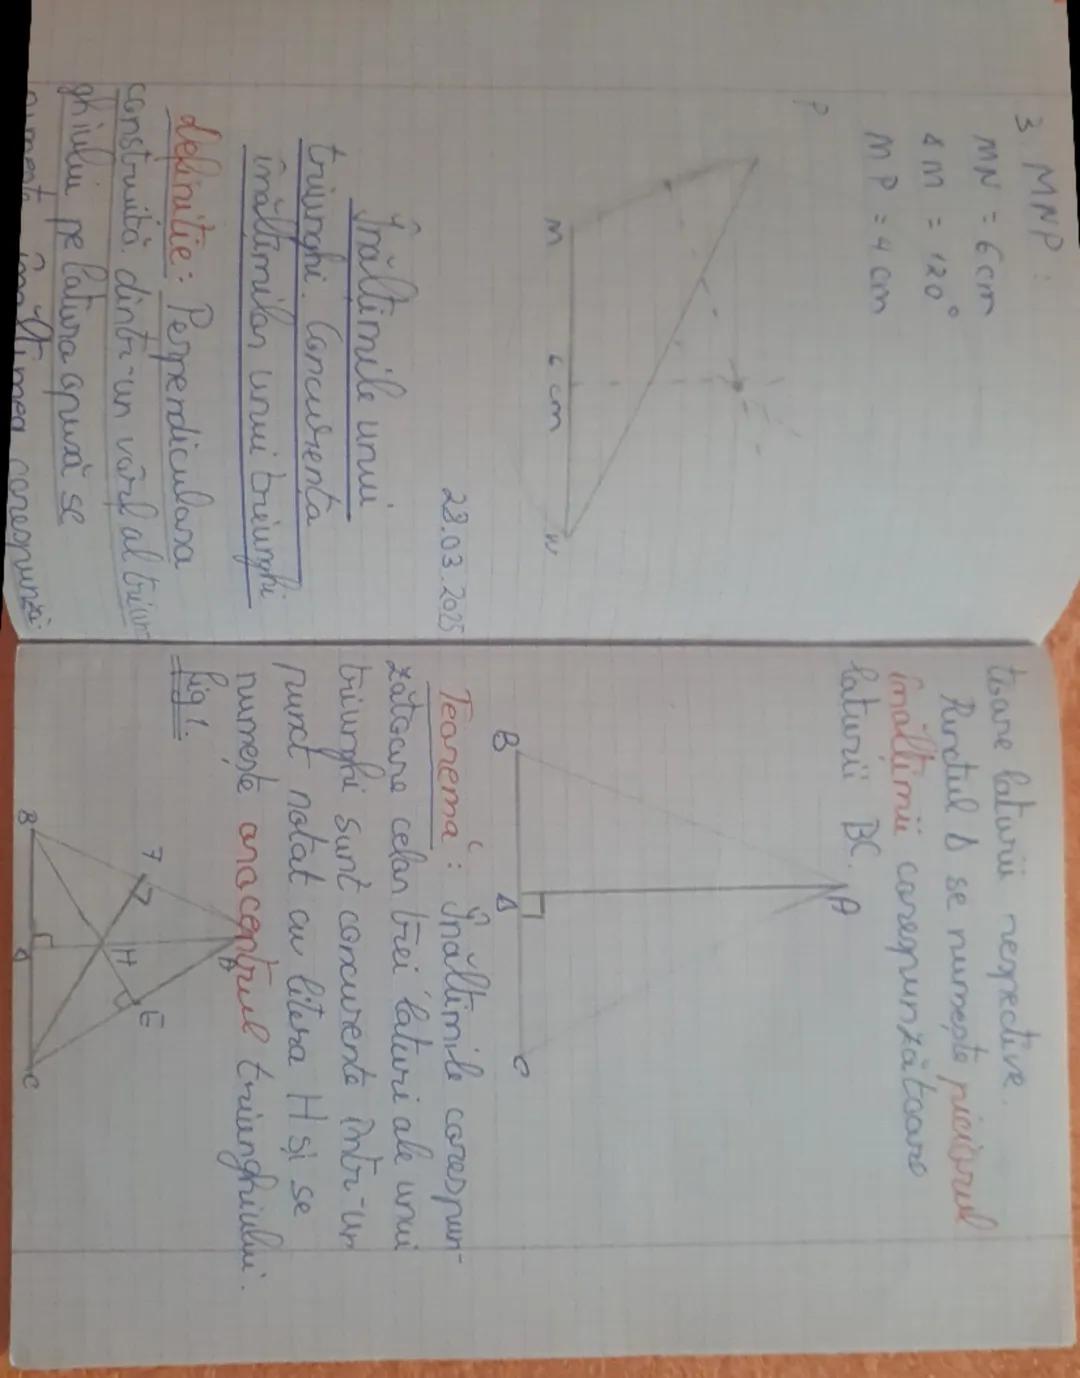 3. MNP:
MN = 6 cm
∢ M = 120°
MP = 4 cm
P
M
6 cm
N
28.03.2025
Înălțimile unui
triunghi. Concurența
înălțimilor unui triunghi
definiție: Perpendiculara
construită dintr-un vârf al triun
ghiului pe latura opusă se
numește înălțimea corespunză-
toare laturii respective.
Punctul D se numește piciorul
înălțimii corespunzătoare
laturii BC.
A
B
D
C
Teoremă: Înălțimile corespun-
zătoare celor trei laturi ale unui
triunghi sunt concurente într-un
punct notat cu litera H și se
numește ortocentrul triunghiului.
fig 1.
A
F
E
H
B
D
C